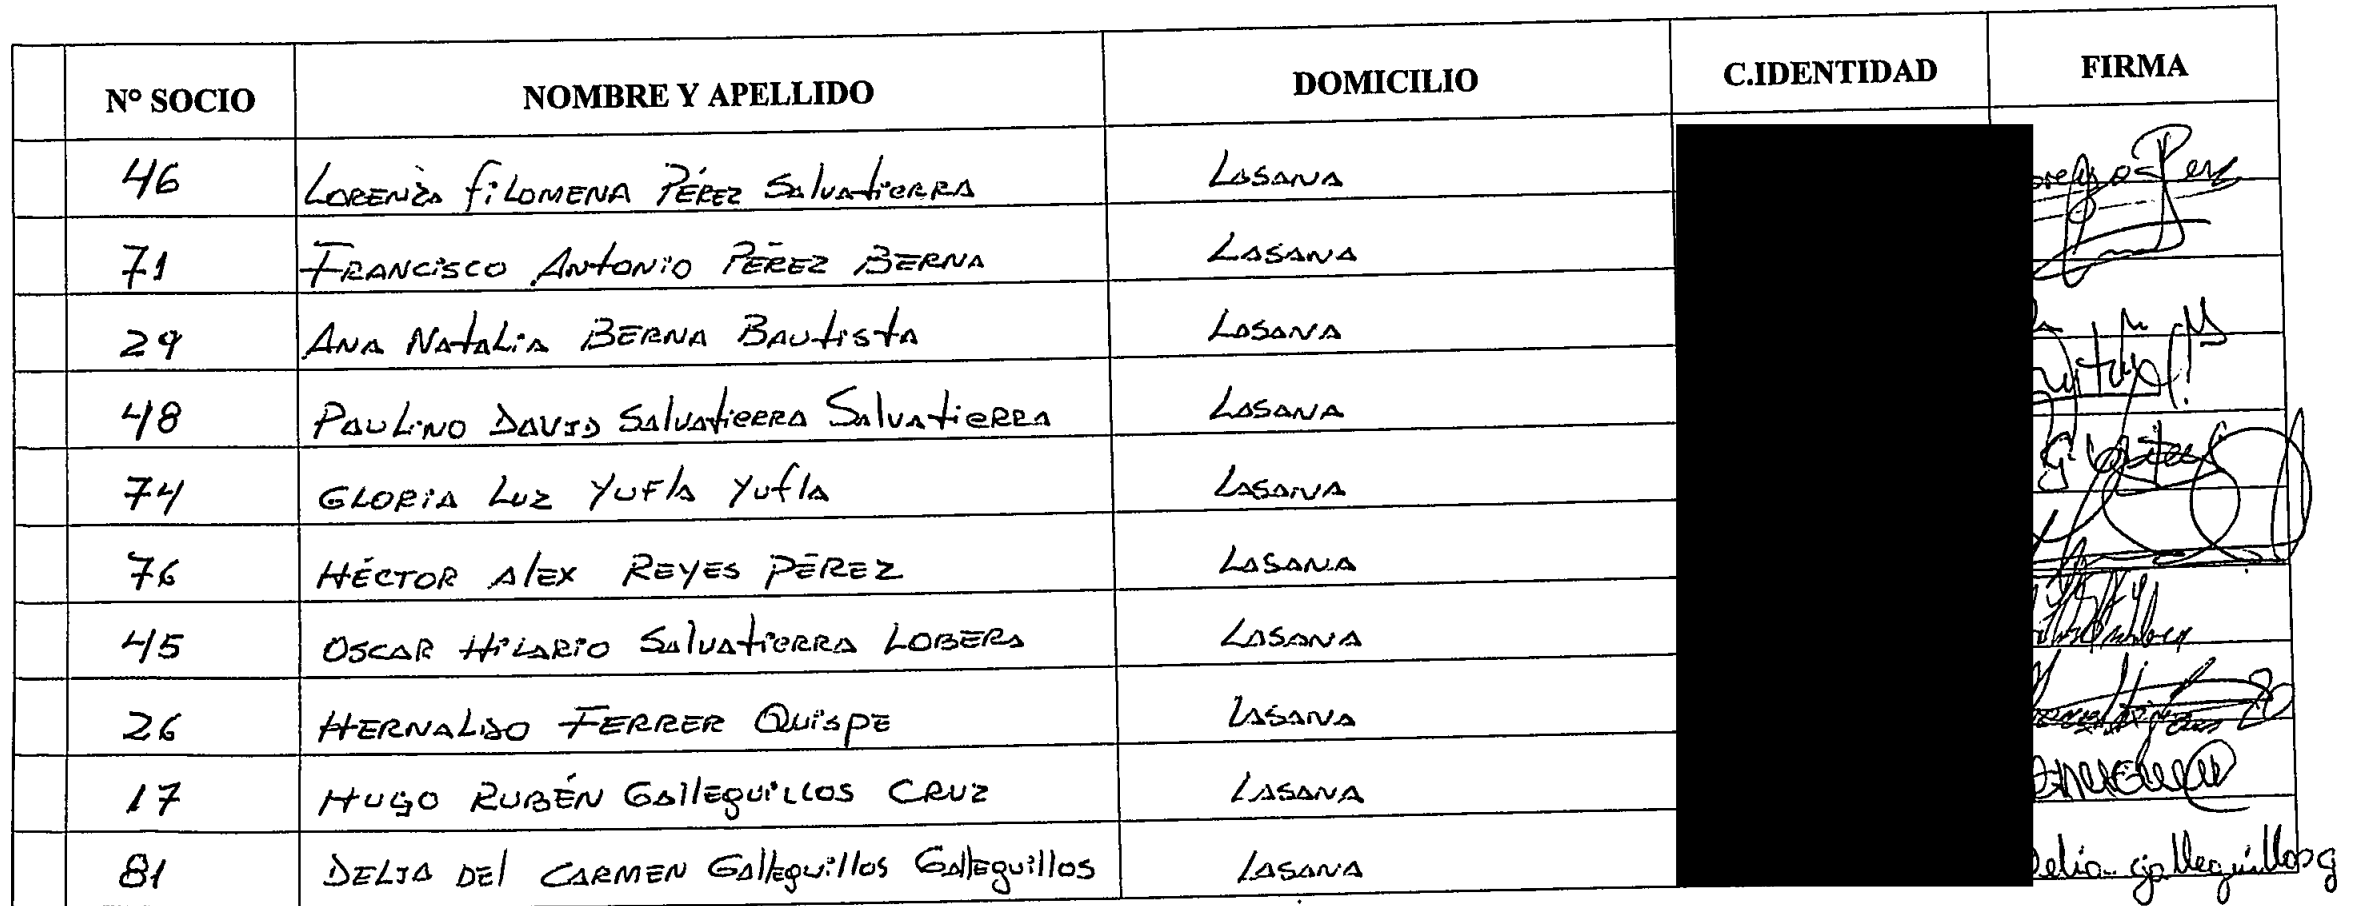 Nº SOCIO NOMBRE Y APELLIDO DOMICILIO C.IDENTIDAD FIRMA
46 LORENZA FILOMENA PÉREZ SALVATIERRA LASANA
71 FRANCISCO ANTONIO PÉREZ BERNA LASANA
29 ANA NATALIA BERNA BAUTISTA LASANA
48 PAULINO DAVID SALVATIERRA SALVATIERRA LASANA
74 GLORIA LUZ YUFLA YUFLA LASANA
76 HÉCTOR ALEX REYES PÉREZ LASANA
45 OSCAR HILARIO SALVATIERRA LOBERA LASANA
26 HERNALDO FERRER QUISPE LASANA
17 HUGO RUBÉN GALLEGUILLOS CRUZ LASANA
81 DELIA DEL CARMEN GALLEGUILLOS GALLEGUILLOS LASANA elia galleguillos g